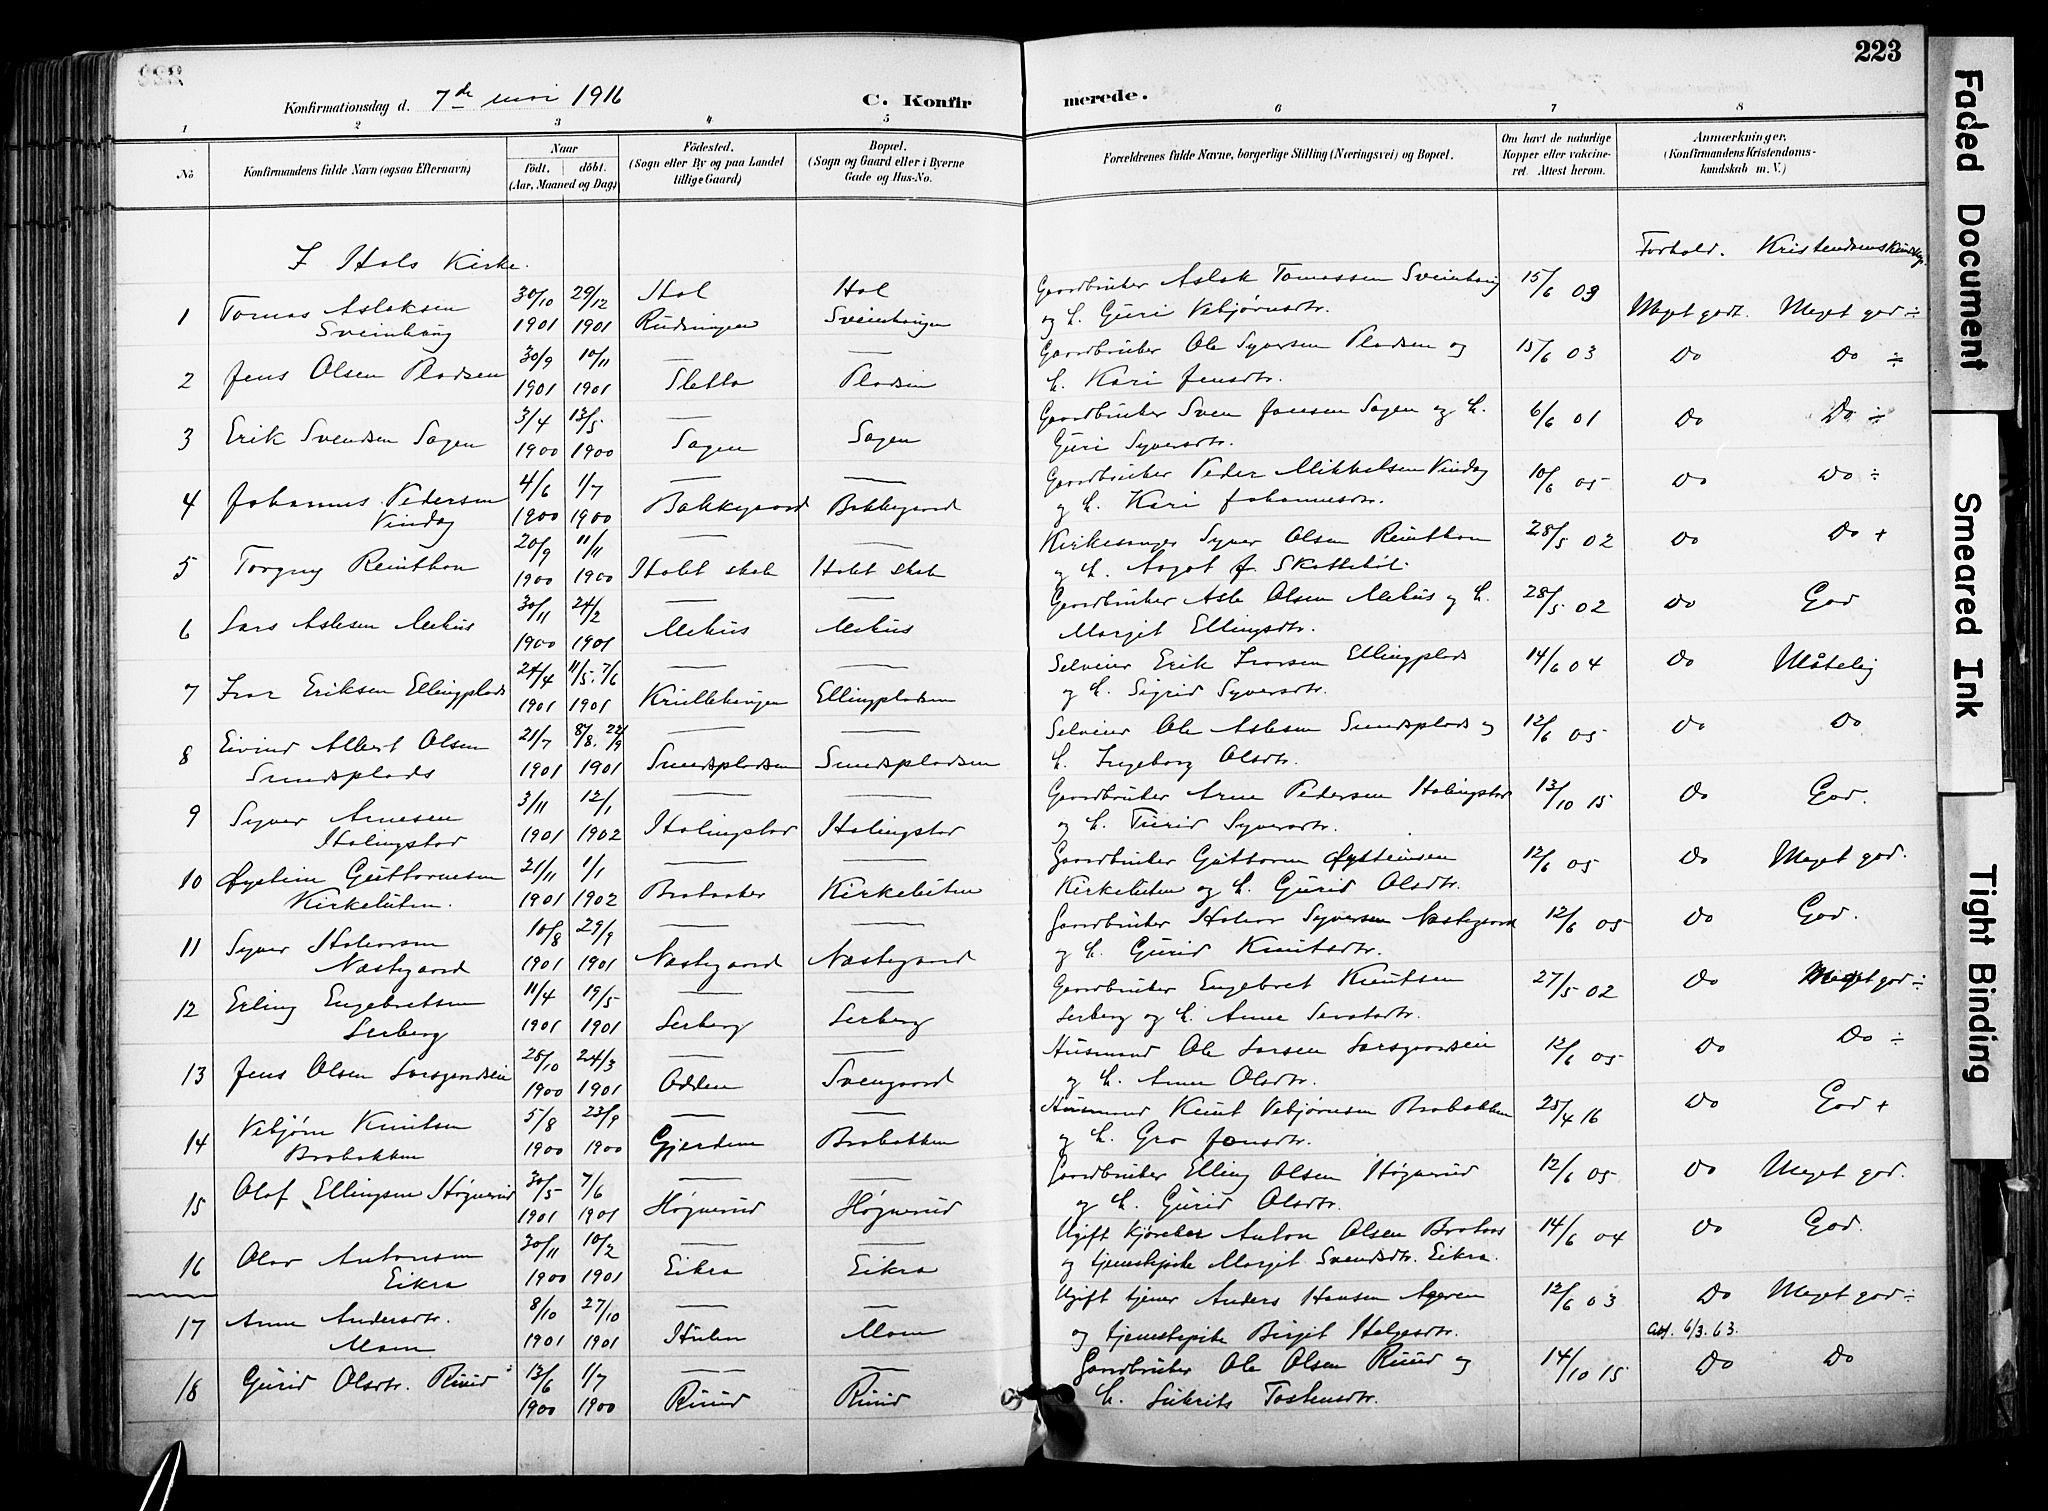 223
Konfirmationsdag d. 7de mai 1916
C. Konfirmerede.
1 2 3 4 5 6 7 8
No
Konfirmandens fulde Navn (ogsaa Efternavn)
Naar
født. døbt.
(Aar, Maaned og Dag)
Fødested.
(Sogn eller By og paa Landet
tillige Gaard)
Bopæl.
(Sogn og Gaard eller i Byerne
Gade og Hus-No.
Forældrenes fulde Navne, borgerlige Stilling (Næringsvei) og Bopæl.
Om havt de naturlige
Kopper eller vakcine-
ret. Attest herom.
Anmærkninger,
(Konfirmandens Kristendoms-
kundskab m. V.)
I Hols Kirke.
Forhold. Kristendoms
1 Tomas Aslaksen 30/10 29/12 Hol Hol Gaardbruker Aslak Tomassen Sveinhaug 15/6 03 Meget godt. Meget god ÷
Sveinhaug 1901 1901 Rudningen Sveinhaugen og h. Guri Vebjørnsdtr.
2 Jens Olsen Pladsen 30/9 10/11 — — Gaardbruker Ole Syversen Pladsen og 15/6 03 Do Do ÷
1901 1901 Sletto Pladsen h. Kari Jensdtr.
3 Erik Svendsen Sagen 3/4 13/5 — Gaardbruker Sven Jansen Sagen og h. 6/6 01 Do Do ÷
1900 1900 Sagen Sagen Guri Syversdtr.
4 Johannes Pedersen 4/6 1/7 — — Gaardbruker Peder Mikkelsen Vindeg 10/6 05 Do Do ÷
Vindeg 1900 1900 Bakkegaard Bakkegaard og h. Kari Johannesdtr.
5 Torgny Reinthon 20/9 11/11 — — Kirkesanger Syver Olsen Reinthon 28/5 02 Do Do +
1900 1900 Holet skole Holet skole og h. Aagot f. Skattebøl.
6 Lars Aslesen Mehus 30/11 24/2 — — Gaardbruker Asle Olsen Mehus og h. 28/5 02 Do God
1900 1901 Mehus Mehus Margit Ellingsdtr.
7 Ivar Eriksen Ellingplads 24/4 11/5. 7/6 — — Selveier Erik Ivarsen Ellingplads 14/6 04 Do Måtelig
1901 1901 Krullehaugen Ellingpladsen og h. Sigrid Syversdtr.
8 Eivind Albert Olsen 21/7 8/8. 22/9 — — Selveier Ole Aslesen Sundsplads og 12/6 05 Do Do
Sundsplads 1901 1901 Sundspladsen Sundspladsen h. Ingeborg Olsdtr.
9 Syver Arnesen 3/11 12/1 — — Gaardbruker Arne Pedersen Holingstad 13/10 15 Do God.
Holingstad 1901 1902 Holingstad Holingstad og h. Turid Syversdtr.
10 Øystein Guttormsen 21/11 1/1 — — Gaardbruker Guttorm Øysteinsen 12/6 05 Do Meget god.
Kirkeluten. 1901 1902 Brobakke Kirkeluten Kirkeluten og h. Gurid Olsdtr.
11 Syver Halvorsen 10/8 29/9 — — Gaardbruker Halvor Syversen Nestegaard 12/6 05 Do God.
Nestegaard 1901 1901 Nestegaard Nestegaard og h. Gurid Knutsdtr.
12 Erling Engebretsen 11/4 19/5 — — Gaardbruker Engebret Knutsen 27/5 02 Do Meget god ÷
Lerberg 1901 1901 Lerberg Lerberg Lerberg og h. Anne
13 Jens Olsen Larsgardseie 28/10 24/3 — — Husmand Ole Larsen Larsgaardseie 12/6 05 Do Do ÷
1900 1901 Odden Svengaard og h. Anne Olsdtr.
14 Vebjørn Knutsen 5/8 23/9 — — Husmand Knut Vebjørnsen Brobakken 25/4 16 Do God +
Brobakken 1900 1900 Gjerdene Brobakken og h. Gro Jonsdtr.
15 Olaf Ellingsen Høgnerud 30/5 7/6 — — Gaardbruker Elling Olsen Høgnerud 12/6 05 Do Meget god.
1901 1901 Høgnerud Høgnerud og h. Gurid Olsdtr.
16 Olav Antonsen 30/11 10/2 — — Ugift Anton Olsen 14/6 04 Do God.
Eikra 1900 1901 Eikra Eikra og tjenestepike Margit Svendsdtr. Eikra.
17 Anne Andersdtr. 8/10 27/10 — — Ugift tjener Anders Hansen Ageren 12/6 03 Do Meget god ÷
Moen 1901 1901 Hulen Moen og tjenestepike Birgit Helgesdtr. 6/3. 63.
18 Gurid Olsdtr. Ruud 13/6 1/7 — — Gaardbruker Ole Olsen Ruud og 14/10 15 Do Do
1900 1900 Ruud Ruud h. Tostensdtr.
Faded Document
Smeared Ink
Tight Binding